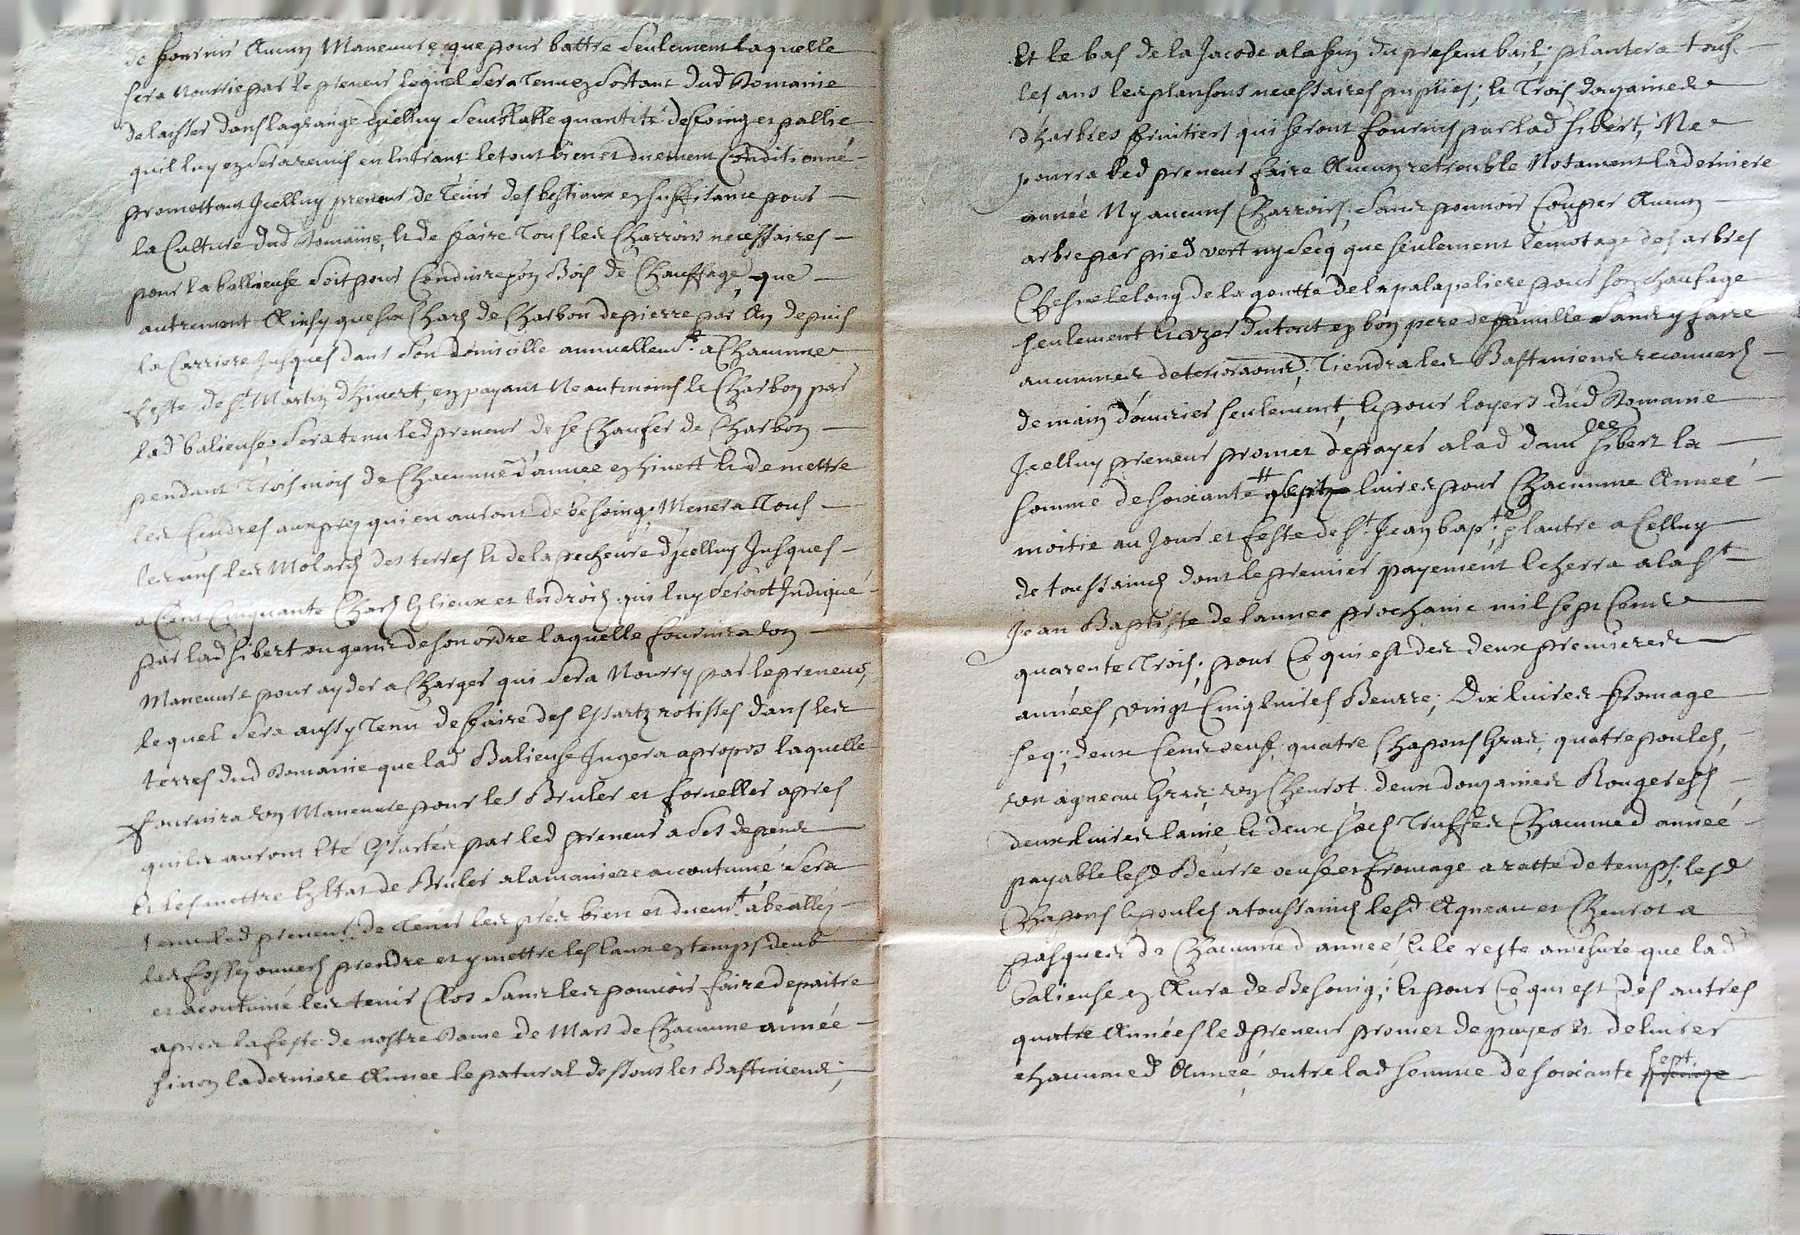 de fournir Aucun Maneuvre que pour battre Seulement laquelle
sera Nourrie par le preneur lequel Sera Tenu en Sortant dud Domaine
de laisser dans la grange d'icelluy Semblable quantité de foing et pallie
qu'il luy en Sera remis en Entrant le tout bien et duement Conditionné
promettant Icelluy preneur de Tenir des bestiaux en suffisance pour
la Culture dud Domaine, & de faire Tous les Charrois necessaires
pour la ballieuse Soit pour Conduire son Bois de Chauffage, que
autrement Ainsy que six Chars de Charbon de pierre par An depuis
la Carriere Jusques dans Son domicille annuellemt a Chacunne
feste de St Martin d'hivert, en payant Neautmoins le Charbon par
lad balieuse; Sera tenu led preneur de se Chaufer de Charbon
pendant Trois mois de Chacunne d'année en hivert & de mettre
les Cendres aux prez qui en auront de besoing; Menera Tous
les ans les Molards des terres & de la pecheure d'icelluy Jusques
a Cent Cinquante Chars Es lieux et Endrois qui luy Seront Indiqué
par lad hibert ou gens de son ordre laquelle fournira Un
Maneuvre pour ayder a Charger qui Sera Nourry par le preneur,
lequel Sera aussy Tenu de faire des Essartz rotisses dans les
terres dud Domaine que lad Balieuse Jugera apropos laquelle
fournira Un Maneuvre pour les Bruler et forneller apres
qu'ils auront Eté Essartés par led preneur a Ses depens
& les mettre En Etat de Bruler a la maniere accoutumé Sera
tenu led preneur de Tenir les prés bien et duemt abeallés
les fossez ouvers prendre et y mettre les Eaux en temps deub
et acoutumé les tenir Clos Sans les pouvoir faire depaitre
apres la feste de nostre Dame de Mars de Chacunne année
sinon la derniere Année le patural dessous les Bastimens;
Et le bas de la Jacode a la fin du present bail; plantera tous
les ans les plansons necessaires; & Trois douzaines
d'harbres fruitiers qui seront fournis par lad hibert, Ne
pourra led preneur faire Aucun retrouble Notament la derniere
année Ny aucuns Charrois, Sans pouvoir Couper Aucun
arbre par pied vert ny Secq que seulement l'emotage des arbres
Chesne le long de la goutte de la palapeliere pour son chaufage
seulement & uzer du tout en bon pere de famille Sans y faire
aucunnes deteriorations, Tiendra les Bastimens recouvers
de main d'ouvrier seulement, & pour loyers dud Domaine
Icelluy preneur promet de payer a lad damlle hibert la
somme de soixante sept livres pour Chacunne Année
moitié au Jour et feste de St Jean bapte, & l'autre a Celluy
de toussaincts dont le premier payement Echerra a la St
Jean Baptiste de l'année prochaine mil sept Cent
quarente Trois; pour Ce qui est des deux premieres
années, vingt Cinq livres Beurre; Dix livres fromage
seq; deux Cens oeufs, quatre Chapons Gras; quatre poules,
un agneau Gras, un Chevrot. deux douzaines
deux livres laine & deux sacs Truffes Chacunne d année
payable lesd Beurre oeufs et fromage a ratte de temps, lesd
Chapons & poules a toussaincts lesd Agneau et Chevrot a
pasques de Chacunne d année, & le reste amesure que lad
balieuse en Aura de Besoing; & pour Ce qui est des autres
quatre Années led preneur promet de payer & delivrer
chacunne d Année, outre lad somme de soixante sept